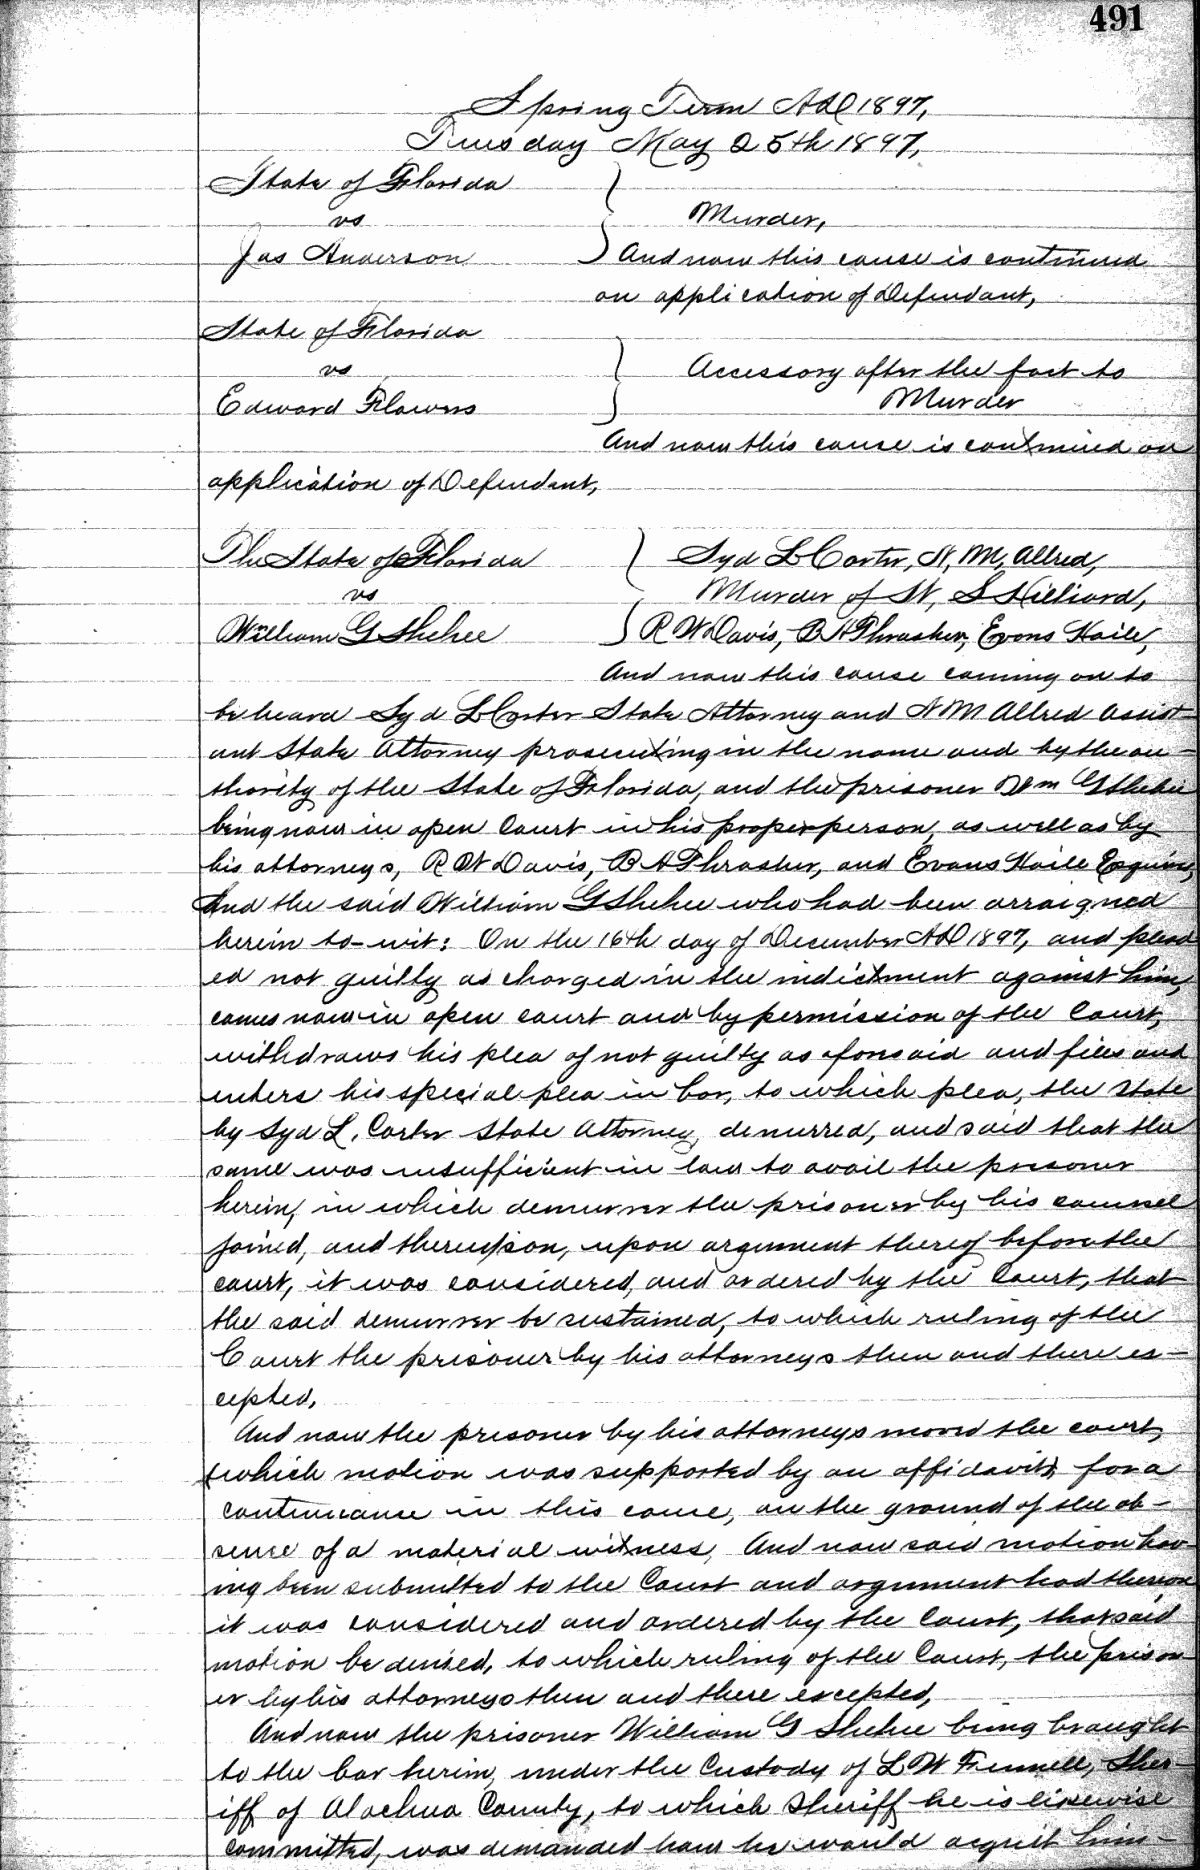 491
Spring Term A.D. 1897,
Tuesday May 25th 1897,
State of Florida
vs Murder,
Jas Anderson And now this cause is continued
on application of Defendant,
State of Florida
vs Accessory after the fact to
Edward Flowers Murder
And now this cause is continued on
application of Defendant,
The State of Florida Syd L Carter, N, M, Allred,
vs Murder of W, S Hilliard,
William G Shehee R W Davis, B A Thrasher, Evans Haile,
And now this cause coming on to
be heard Syd L Carter State Attorney and N M Allred Assist-
ant State Attorney prosecuting in the name and by the au-
thority of the State of Florida, and the prisoner Wm G Shehee
being now in open Court in his proper person, as well as by
his attorneys, R W Davis, B A Thrasher, and Evans Haile Esquires,
And the said William G Shehee who had been arraigned
herein to-wit: On the 16th day of December AD 1897, and plead
ed not guilty as charged in the indictment against him,
comes now in open court and by permission of the Court,
withdraws his plea of not guilty as aforesaid and files and
enters his special plea in bar, to which plea, the State
by Syd L. Carter State Attorney, demurred, and said that the
same was insufficient in law to avail the prisoner
herein, in which demurrer the prisoner by his counsel
joined, and thereupon, upon argument thereof before the
court, it was considered, and ordered by the Court, that
the said demurrer be sustained, to which ruling of the
Court the prisoner by his attorneys then and there ex-
cepted,
And now the prisoner by his attorneys moved the court,
(which motion was supported by an affidavit) for a
continuance in this cause, on the ground of the ab-
sence of a material witness, And now said motion hav-
ing been submitted to the Court and argument had thereon
it was considered and ordered by the Court, that said
motion be denied, to which ruling of the Court, the prison
er by his attorneys then and there excepted,
And now the prisoner William G Shehee being brought
to the bar herein, under the custody of L W Fennell, Sher-
iff of Alachua County, to which Sheriff he is likewise
committed, was demanded how he would acquit him-